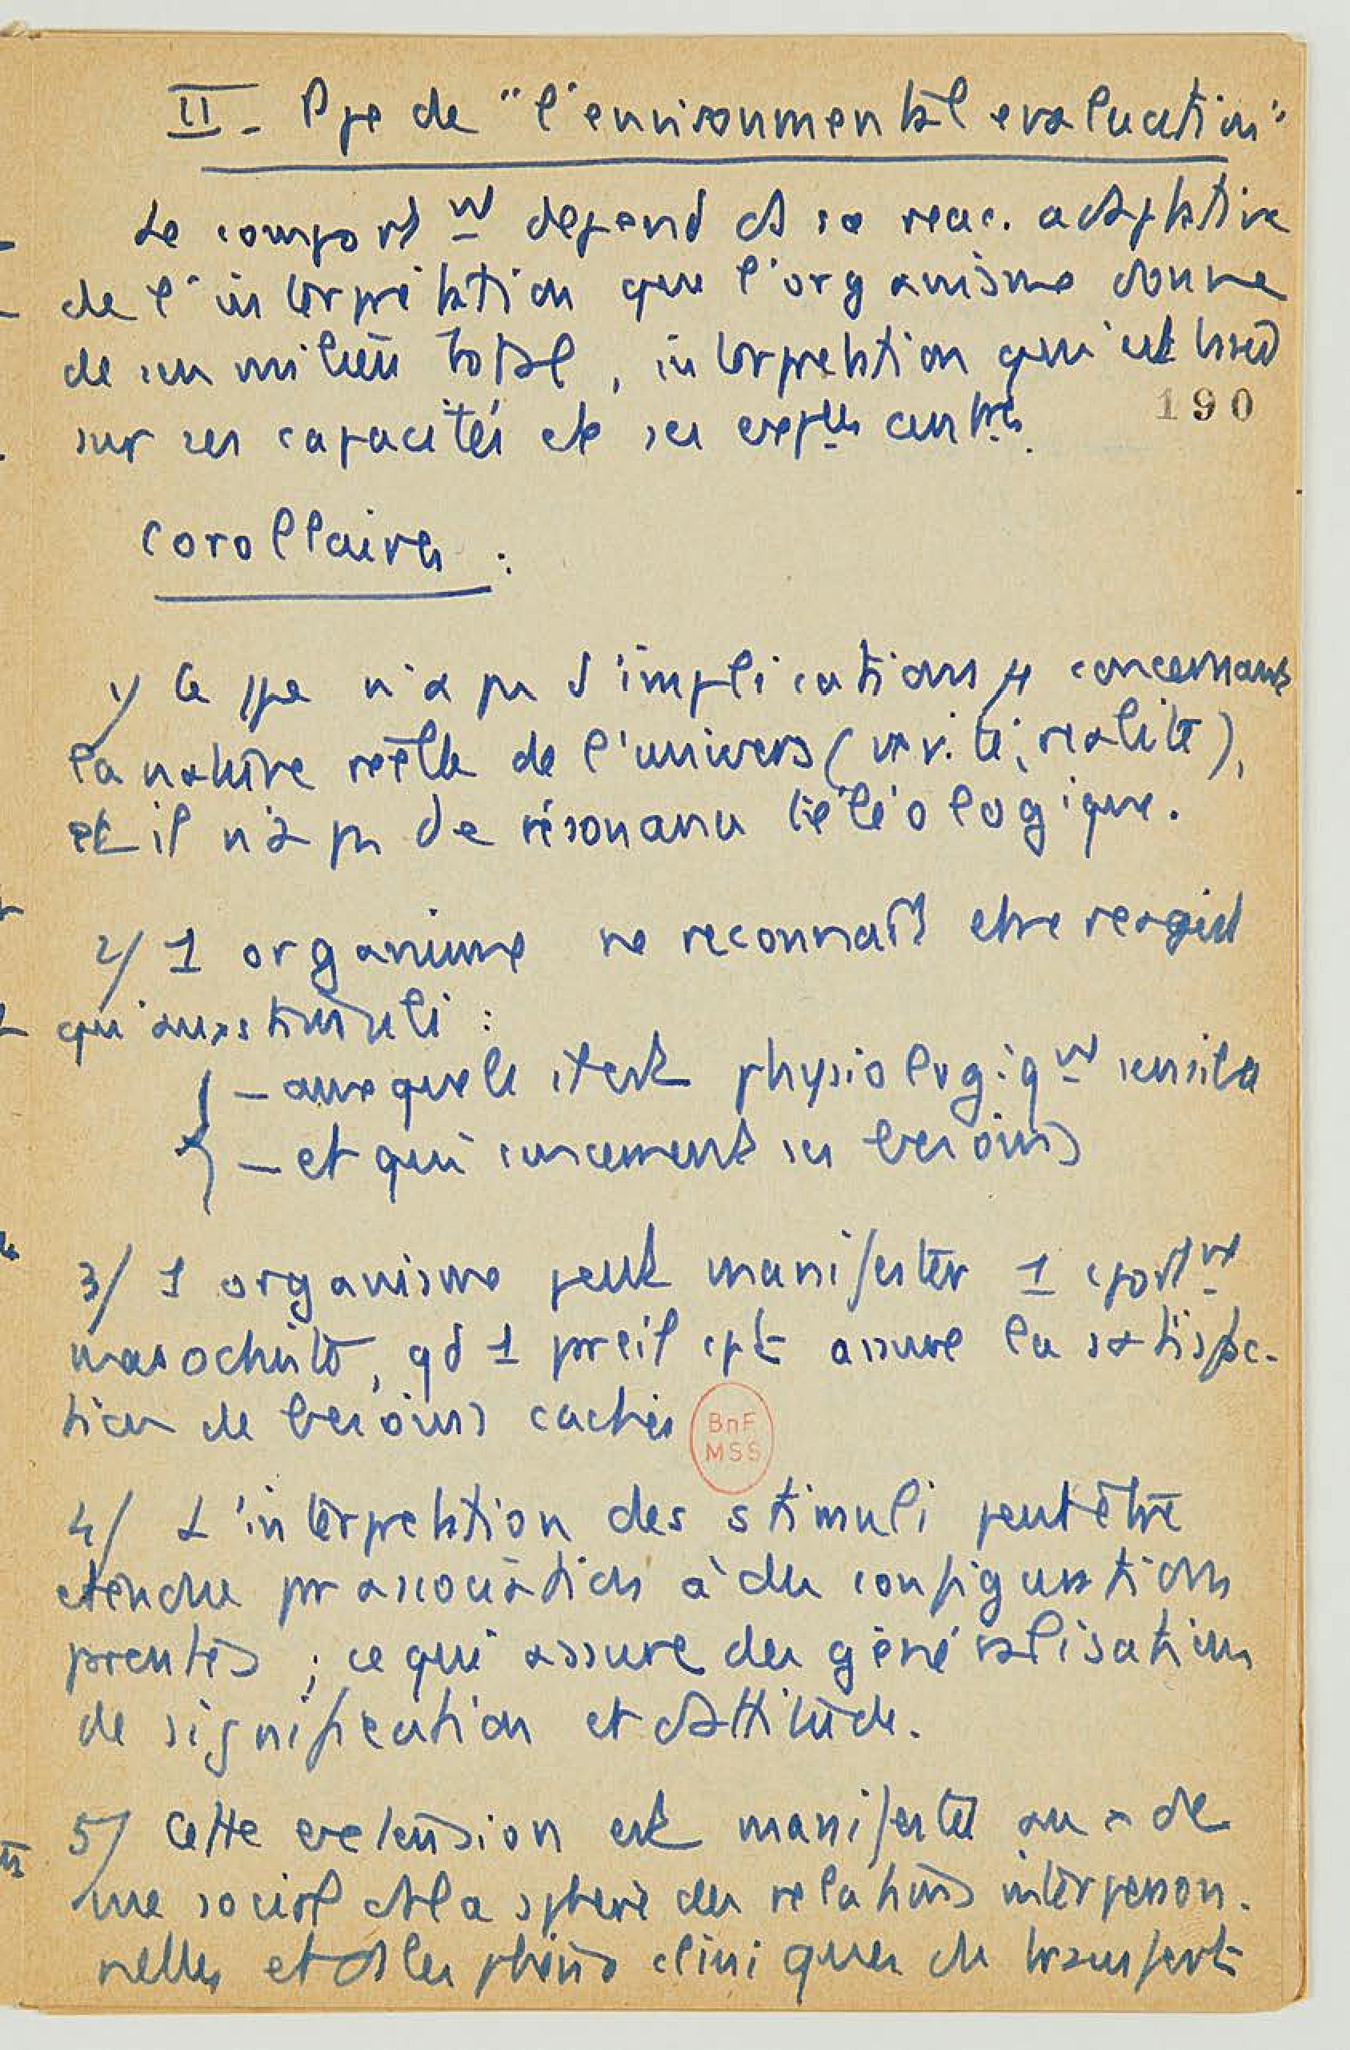 II - Ppe de "l'environmental evaluation"
Le comportnt dépend ds sa reac. adaptative
de l'interprétation que l'organisme donne
de son milieu total, interprétation qui est basée
sur ses capacités et ses
190
Corollaires :
1/ Ce ppe n'a pas d'implications concernant
la nature réelle de l'univers (vérité, réalité),
et il n'a pas de résonance téléologique.
2/ 1 organisme ne reconnaît et ne réagit
qu'aux stimuli :
- auxquels il est physiologiqnt sensible
- et qui concernent ses besoins
3/ 1 organisme peut manifester 1 cportnt
masochiste, qd 1 pareil cpt assure la satisfac-
tion de besoins cachés
BnF
MSS
4/ L'interprétation des stimuli peut être
étendue par association à des configurations
parentes ; ce qui assure des généralisations
de signification et d'attitude.
5/ Cette extension est manifestée au de
vue social ds la sphère des relations interperson-
nelles et ds les phéno cliniques de transfert